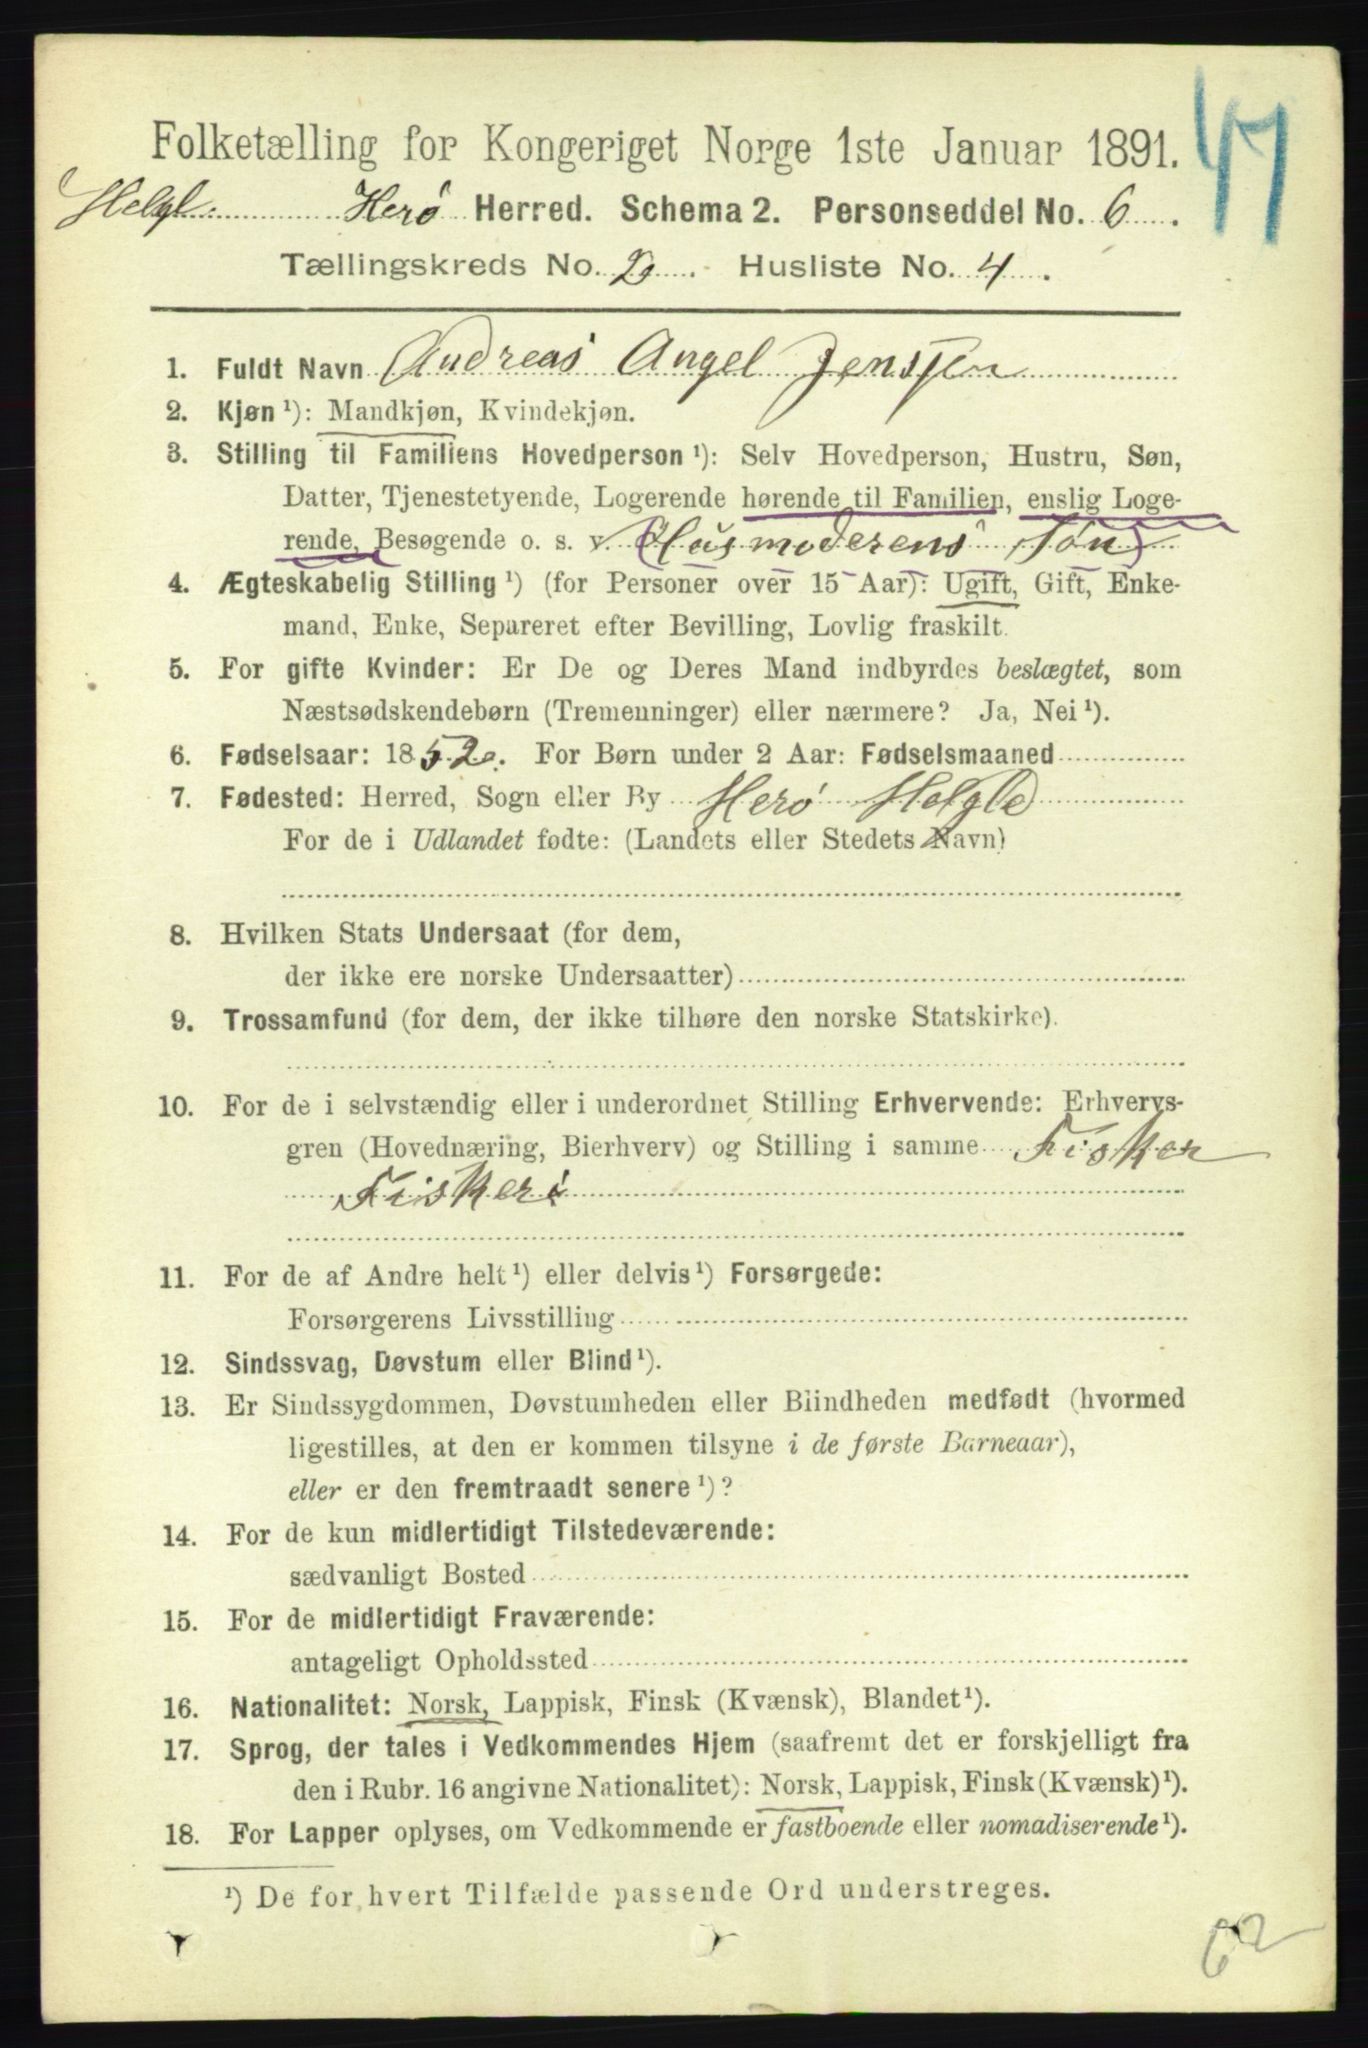 47
Folketælling for Kongeriget Norge 1ste Januar 1891.
Helgl. Herø Herred. Schema 2. Personseddel No. 6.
Tællingskreds No. 2. Husliste No. 4.
1. Fuldt Navn Andreas Angel Jenssen
2. Kjøn ¹): Mandkjøn, Kvindekjøn.
3. Stilling til Familiens Hovedperson ¹): Selv Hovedperson, Hustru, Søn,
Datter, Tjenestetyende, Logerende hørende til Familien, enslig Loge-
rende, Besøgende o. s. v. (Husmoderens Søn)
4. Ægteskabelig Stilling ¹) (for Personer over 15 Aar): Ugift, Gift, Enke-
mand, Enke, Separeret efter Bevilling, Lovlig fraskilt.
5. For gifte Kvinder: Er De og Deres Mand indbyrdes beslægtet, som
Næstsødskendebørn (Tremenninger) eller nærmere? Ja, Nei ¹).
6. Fødselsaar: 1852. For Børn under 2 Aar: Fødselsmaaned
7. Fødested: Herred, Sogn eller By Herø Helgld
For de i Udlandet fødte: (Landets eller Stedets Navn)
8. Hvilken Stats Undersaat (for dem,
der ikke ere norske Undersaatter)
9. Trossamfund (for dem, der ikke tilhøre den norske Statskirke).
10. For de i selvstændig eller i underordnet Stilling Erhvervende: Erhvervs-
gren (Hovednæring, Bierhverv) og Stilling i samme Fisker
Fiskeri
11. For de af Andre helt ¹) eller delvis ¹) Forsørgede:
Forsørgerens Livsstilling
12. Sindssvag, Døvstum eller Blind ¹).
13. Er Sindssygdommen, Døvstumheden eller Blindheden medfødt (hvormed
ligestilles, at den er kommen tilsyne i de første Barneaar),
eller er den fremtraadt senere ¹)?
14. For de kun midlertidigt Tilstedeværende:
sædvanligt Bosted
15. For de midlertidigt Fraværende:
antageligt Opholdssted
16. Nationalitet: Norsk, Lappisk, Finsk (Kvænsk), Blandet ¹).
17. Sprog, der tales i Vedkommendes Hjem (saafremt det er forskjelligt fra
den i Rubr. 16 angivne Nationalitet): Norsk, Lappisk, Finsk (Kvænsk) ¹).
18. For Lapper oplyses, om Vedkommende er fastboende eller nomadiserende ¹).
¹) De for hvert Tilfælde passende Ord understreges.
62